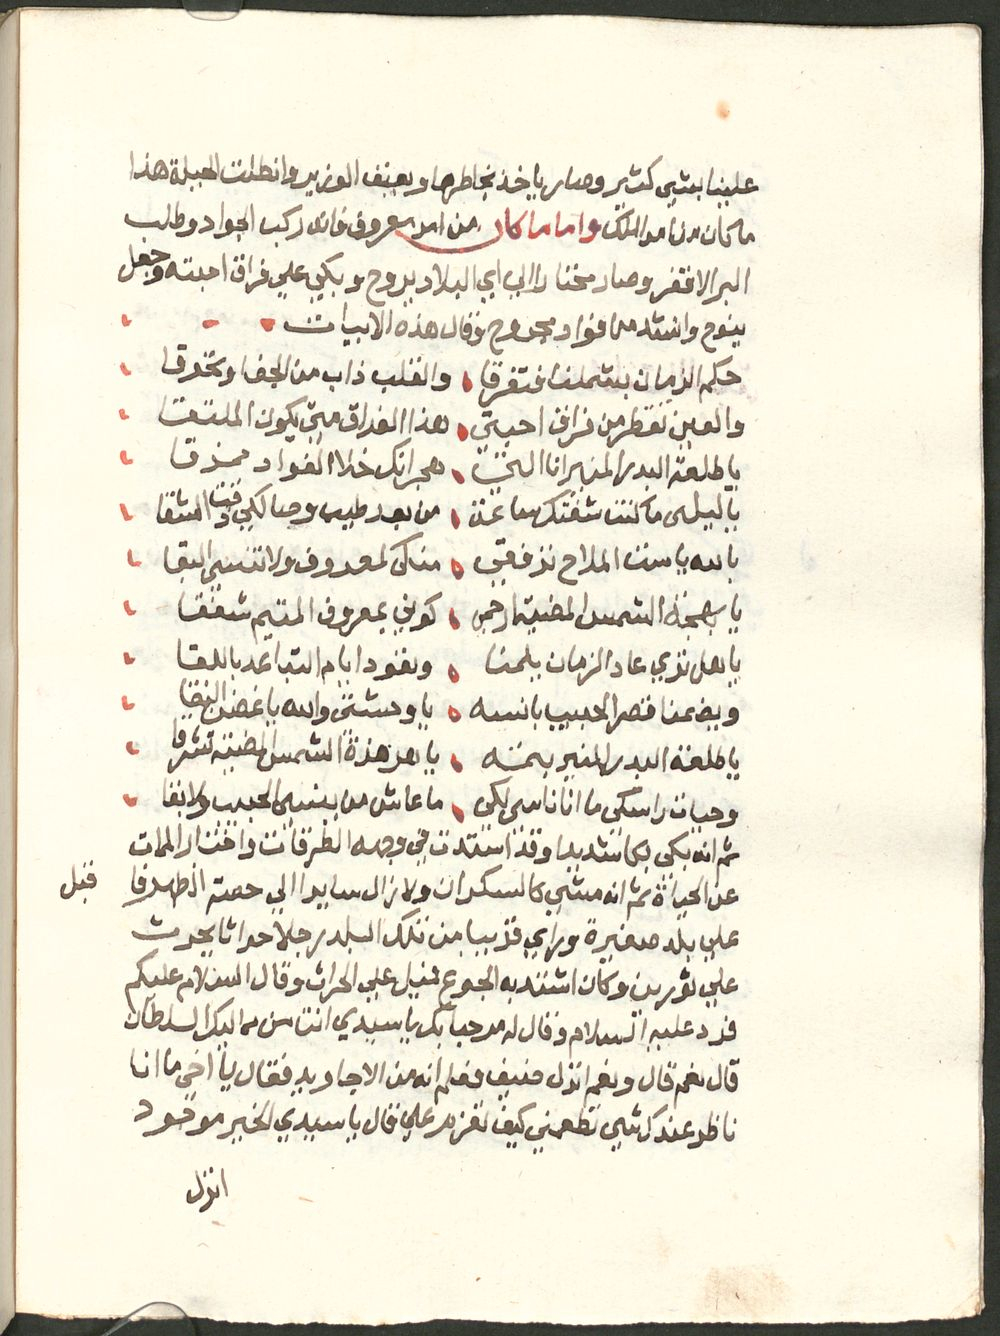 علينا بشي كثير وصار ياخذ بخاطرها ويعنف الوزير وانطلت الحيلة هذا
ما كان من امر الملك واما ما كان من امر معروف فانه ركب الجواد وطلب
البر الاقفر وصار محتار الي اي البلاد يروح وبكي علي فراق احبته وجعل
ينوح وانشد من فواد مجروح وقال هذه الابيات
حكم الزمان بشملنا فتفرقا والقلب ذاب من الجفا وتحرقا
والعين تقطر من فراق احبتي هذا الفراق متي يكون الملتقا
يا طلعة البدر المنير انا الذي هجرانك خلا الفواد ممزقا
يا ليلي ما كنت شفتك ساعة من بعد طيب وصالكي ذقت الشقا
بالله يا ست الملاح ترفقي منكي لمعروف ولا تنسي البقا
يا بهجة الشمس المضيئة ارحمي كوني بمعروف المتيم شفقا
يا هل تري عاد الزمان يلمنا ونفود ايام التباعد باللقا
ويضمنا قصر الحبيب بانسه يا وحشتي والله يا غصن النقا
يا طلعة البدر المنير بحسنه يا هذه الشمس المضيئة تشرقا
وحيات راسكي ما انا ناسي لكي ما عاش من ينسي الحبيب ولا بقا
ثم انه بكي بكا شديدا وقد استدت في وجهه الطرقات واختار الممات
عن الحياة ثم انه مشي كالسكران ولا زال سايرا الي حصة الظهر فا قبل
علي بلد صغيرة وراي قريبا من تلك البلد رجلا حراثا يحرث
علي ثورين وكان اشتد به الجوع فنزل علي الحراث وقال السلام عليكم
فرد عليه السلام وقال له مرحبا بك يا سيدي انت من مماليك السلطان
قال نعم قال ونعم انزل ضيف فعلم انه من الاجاويد فقال يا اخي ما انا
ناظر عندك شي تطعمني كيف تعزم علي قال يا سيدي الخير موجود
انزل